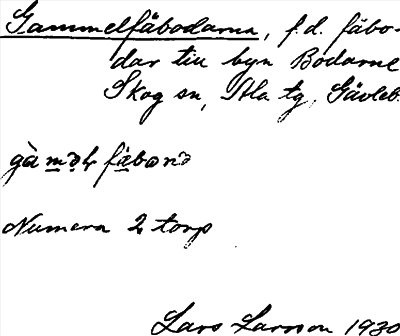 Gammelfäbodarna, f.d. fäbo-
dar till byn Bodarne
Skog sn, Ala tg, Gävleb.
Numera 2 torp
Lars Larsson 1930